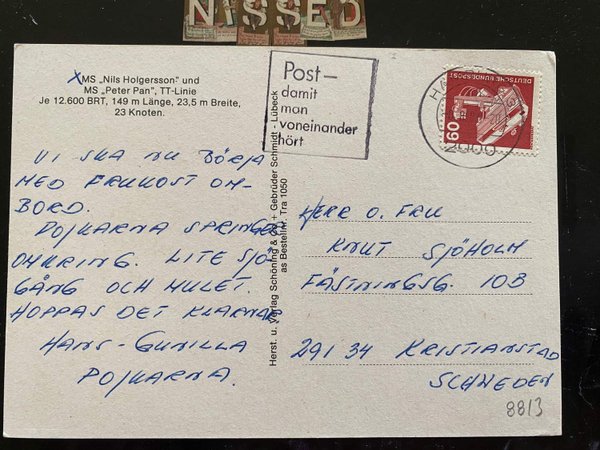 NISSED
X MS „Nils Holgersson" und
MS „Peter Pan", TT-Linie
Je 12.600 BRT, 149 m Länge, 23,5 m Breite,
23 Knoten.
VI SKA NU BÖRJA
MED FRUKOST OM-
BORD.
POJKARNA SPRINGER
OMKRING. LITE SJÖ-
GÅNG OCH MULET.
HOPPAS DET KLARNAR
HANS-GUNILLA
POJKARNA.
Herst. u. Verlag Schöning & Co + Gebrüder Schmidt - Lübeck
as Bestellnr. Tra 1050
Post—
damit
man
voneinander
hört
2000
DEUTSCHE BUNDESPOST
60
HERR O. FRU
KNUT SJÖHOLM
FÄSTNINGSG. 10B
291 34 KRISTIANSTAD
SCHWEDEN
8813